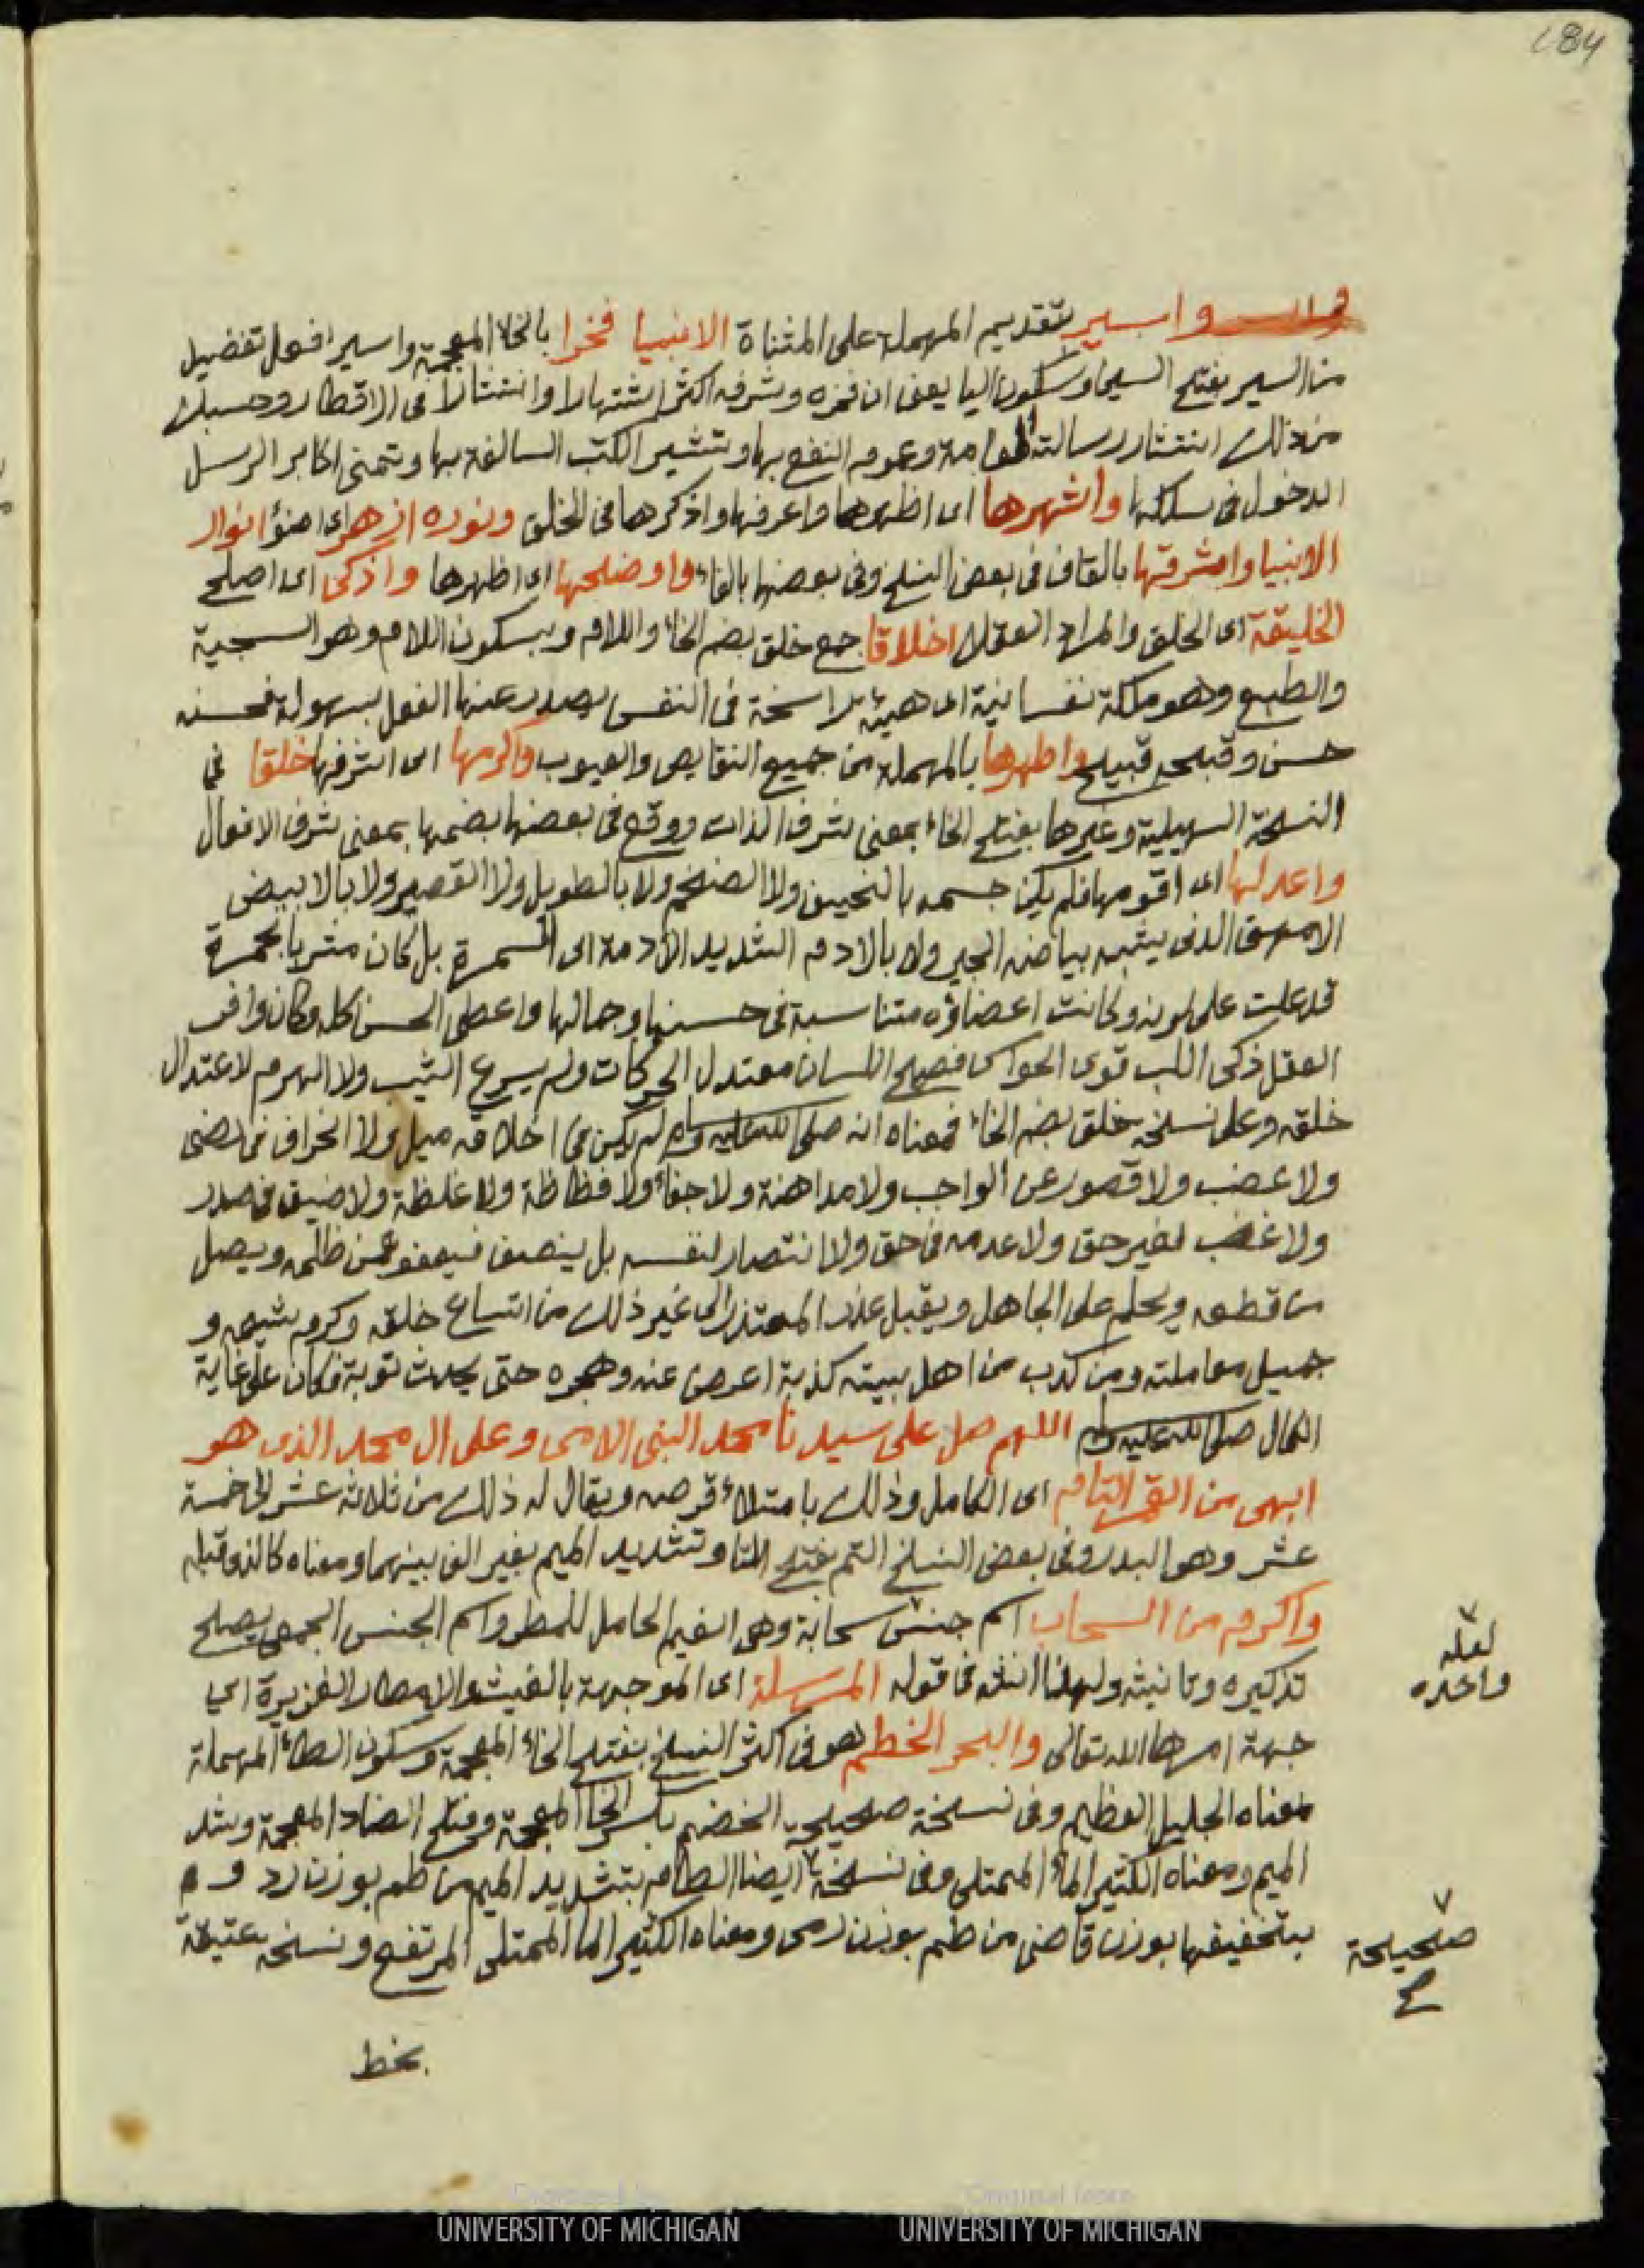 284
واسير بتقديم المهملة على المثناة الانبيا فخرا بالخا المعجمة واسير افعل تفضيل
من السير بفتح السين وسكون اليا يعنى ان فخره وشرفه اكثر اشتهارا وانتشارا فى الاقطار وحسبك
من ذلك انتشار رسالته العامة وعموم النفع بها وتبشير الكتب السالفة بها وتمنى اكابر الرسل
الدخول فى سلكها واشهرها اى اظهرها واعرفها واذكرها فى الخلق ونوره ازهر اى اضوٲ انوار
الانبيا واشرقها بالقاف فى بعض النسخ وفى بعضها بالفاء واوضحها اى اظهرها واذكى اى اصلح
الخليقة اى الخلق والمراد العقلا اخلاقا جمع خلق بضم الخاء واللام وبسكون اللام وهو السجية
والطبع وهو ملكة نفسانية اى هيئة راسخة فى النفس يصدر عنها الفعل بسهولة فحسنه
حسن وقبحه قبيح واطهرها بالمهملة من جميع النقايص والعيوب واكرمها اى اشرفها خلقا فى
النسخة السهيلية وغيرها بفتح الخاء بمعنى شرف الذات ووقع فى بعضها بضمها بمعنى شرف الافعال
واعدلها اى اقومها فلم يكن جسمه بالنحيف ولا الضخم ولا بالطويل ولا القصير ولا بالابيض
الامهق الذى يشبه بياضه الجير ولا بالادم الشديد الادمة اى السمرة بل كان مشربا بحمرة
قد علت على لونه وكانت اعضاؤه متناسبة فى حسنها وجمالها واعطى الحسن كله وكان وافر
العقل ذكى اللب قوى الحواس فصيح اللسان معتدل الحركات ولم يسرع الشيب ولا الهرم لاعتدال
خلقه وعلى نسخة خلق بضم الخاء فمعناه انه صلى الله عليه وسلم لم يكن فى اخلاقه ميل ولا انحراف فى رضى
ولا غضب ولا قصور عن الواجب ولا مداهنة ولا جفاء ولا فظاظة ولا غلظة ولا ضيق فى صدر
ولا غضب لغير حق ولا عدمه فى حق ولا انتصار لنفسه بل ينصف فيعفو عمن ظلمه ويصل
من قطعه ويحلم على الجاهل ويقبل عذر المعتذر الى غير ذلك من اتساع خلقه وكرم شيمه و
جميل معاملته ومن كذب من اهل بيته كذبة اعرض عنه وهجره حتى يحدث توبة فكان على غاية
الكمال صلى الله عليه وسلم اللهم صل على سيدنا محمد النبى الامى وعلى ال محمد الذى هو
ابهى من القمر التام اى الكامل وذلك بامتلاء قرصه ويقال له ذلك من ثلاثة عشر الى خمسة
عشر وهو البدر وفى بعض النسخ التم بفتح التا وتشديد الميم بغير الف بينهما ومعناه كالذى قبله
واكرم من السحاب اسم جنس سحابة وهى الغيم الحامل للمطر واسم الجنس الجمعى يصلح
تذكيره وتانيثه ولهذا انثه فى قوله المرسلة اى الموجهة بالغيث والامطار الغزيرة الى
جهة امرها الله تعالى والبحر الخطم هو فى اكثر النسخ بفتح الخاء المعجمة وسكون الطاء المهملة
معناه الجليل العظيم وفى نسخة صحيحة الخضم بكسر الخا المعجمة وفتح الضاد المعجمة وشد
الميم ومعناه الكثير الماء الممتلى وفى نسخة ايضا الطام بتشديد الميم من طم بوزن رد و م
بتخفيفها بوزن قاضى من طم بوزن رمى ومعناه الكثير الما الممتلى المرتفع ونسخة عتيقة
لعله
واحده
صحيحة
صح
بخط
UNIVERSITY OF MICHIGAN
Original from
UNIVERSITY OF MICHIGAN